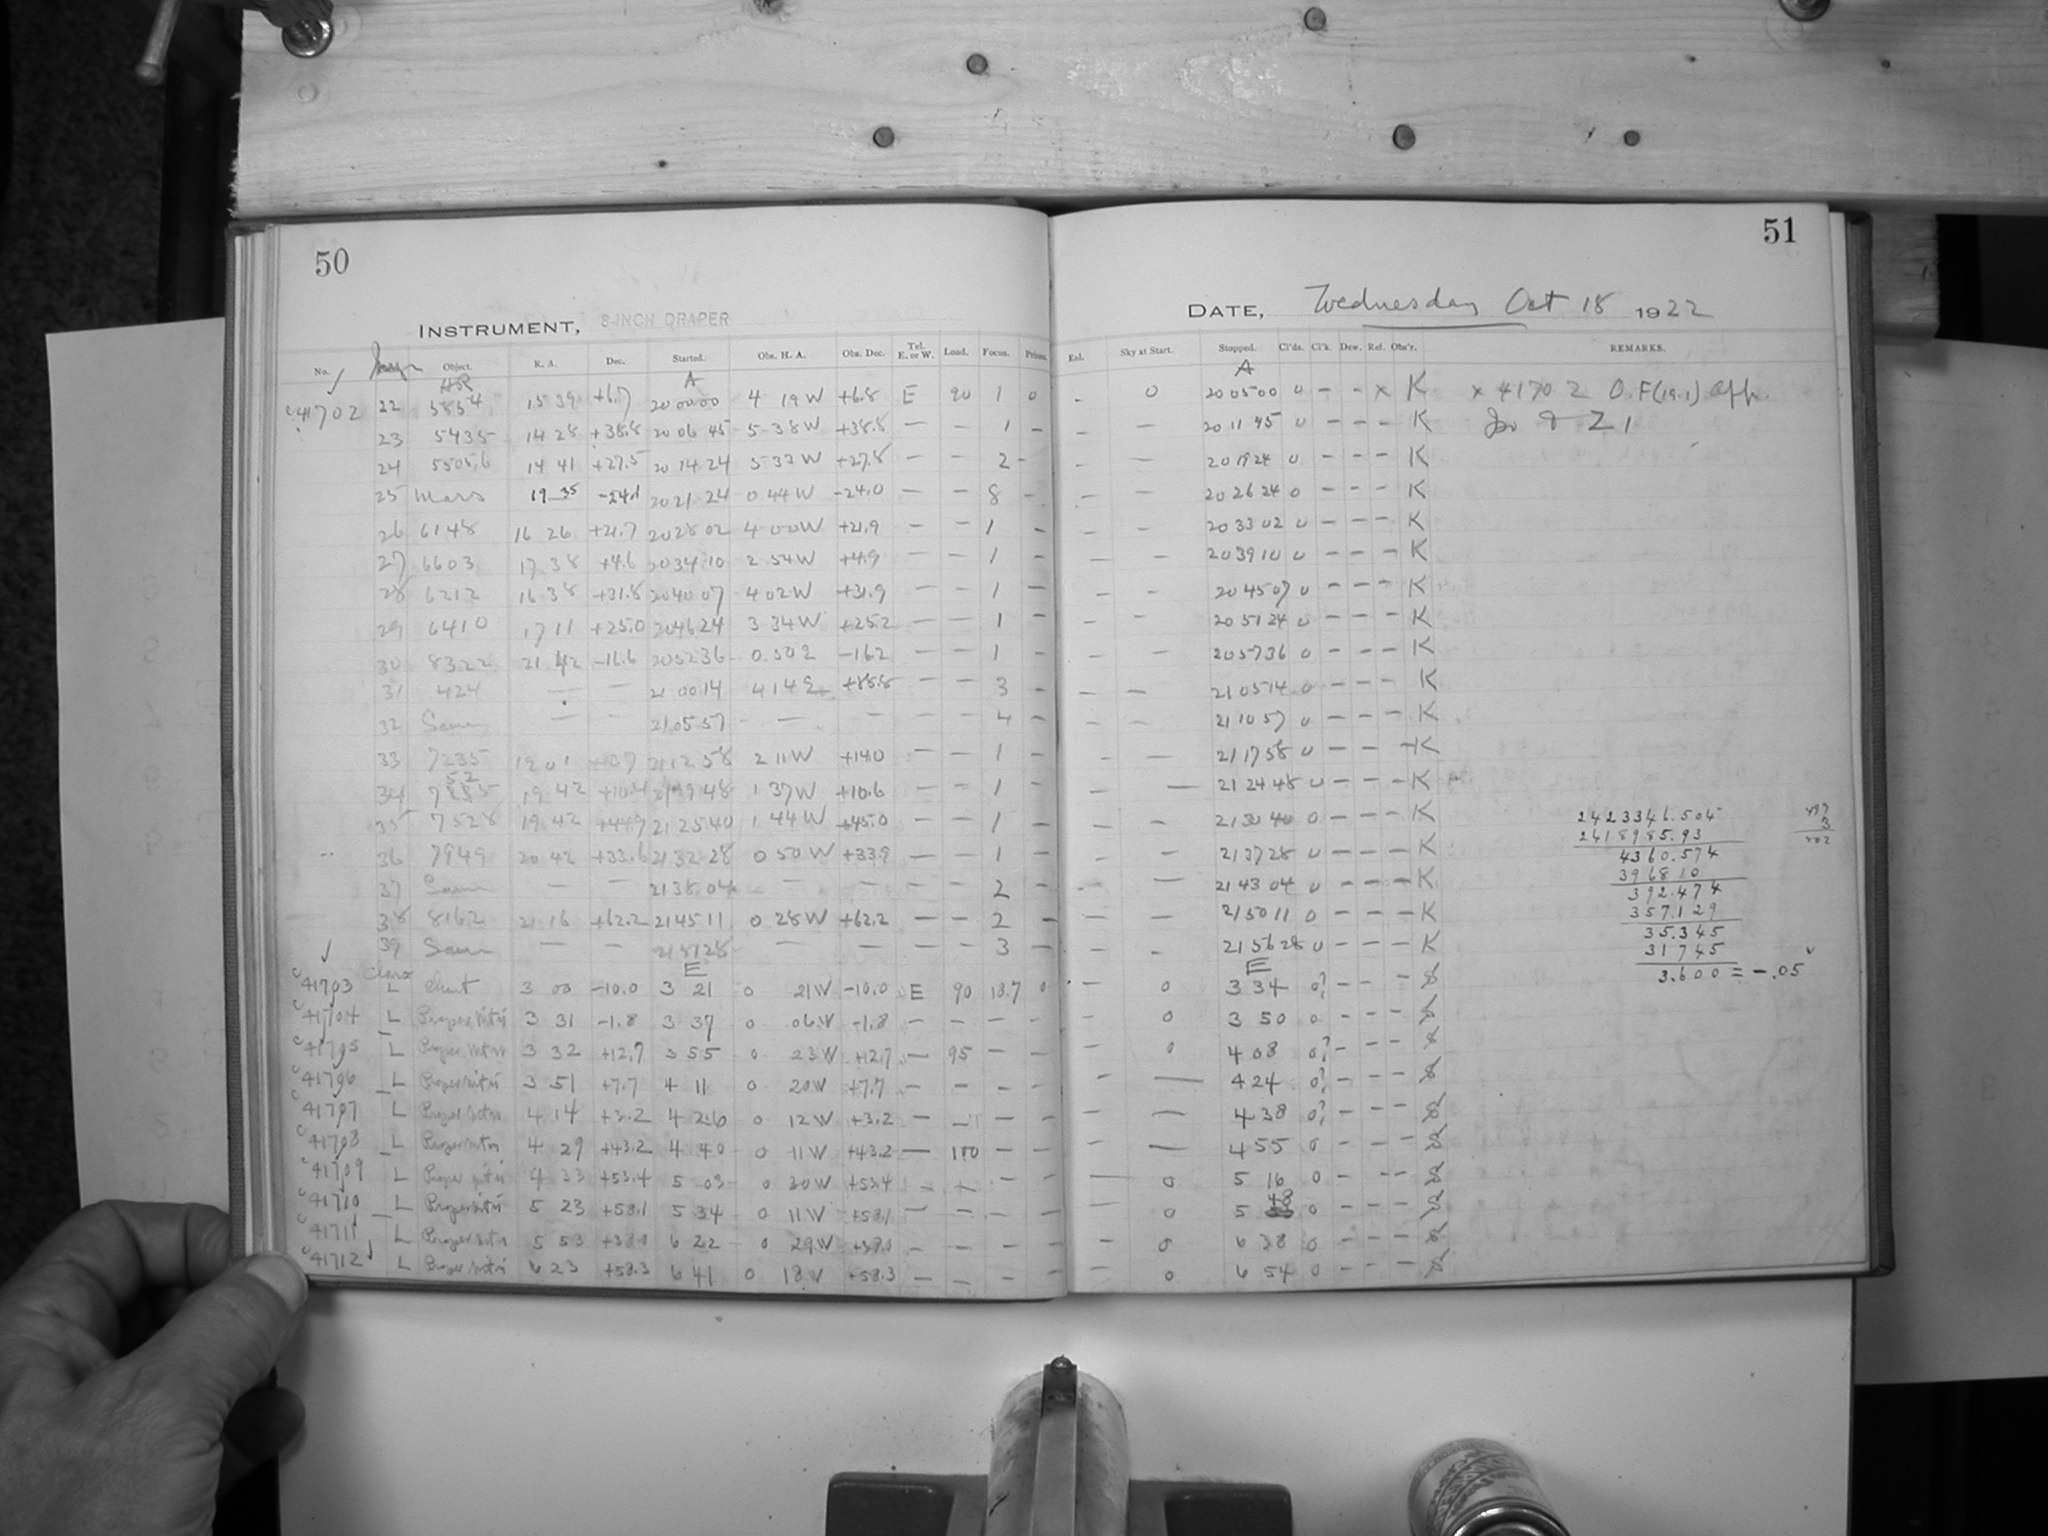 50
51
INSTRUMENT, 8-INCH DRAPER
DATE, Wednesday Oct 18 1922
No. Object. R. A. Dec. Started. Obs. H. A. Obs. Dec. Tel. E. or W. Load. Focus. Sky at Start. Stopped. Cl'ds. Cl'k. Dew. Ref. Obs'r. REMARKS.
HR A A
41702 22 5854 15 39 +6.7 20 00 00 4 19 W +6.8 E 90 1 0 - 0 20 05 00 0 - - x K x 41702 O.F(19.1)
23 5435 14 28 +38.8 20 06 45 5 38 W +38.8 — — 1 - - — 20 11 45 0 - - - K
24 5505,6 14 41 +27.5 20 14 24 5 33 W +27.8 — — 2 - - — 20 19 24 0 - - - K
25 Mars 19 35 -24.1 20 21 24 0 44 W -24.0 — — 8 - - — 20 26 24 0 - - - K
26 6148 16 26 +21.7 20 28 02 4 00 W +21.9 — — 1 - - — 20 33 02 0 - - - K
27 6603 17 38 +4.6 20 34 10 2 54 W +4.9 — — 1 - - - 20 39 10 0 - - - K
28 6212 16 38 +31.8 20 40 07 4 02 W +31.9 — — 1 - - - 20 45 07 0 - - - K
29 6410 17 11 +25.0 20 46 24 3 34 W +25.2 — — 1 - - - 20 51 24 0 - - - K
30 8322 21 42 -16.6 20 52 36 0 50 E -16.2 — — 1 - - - 20 57 36 0 - - - K
31 424 — — 21 00 14 4 14 E +88.8 — — 3 - - — 21 05 14 0 - - - K
32 Same — — 21 05 57 — — — — 4 - - — 21 10 57 0 - - - K
33 7235 19 01 21 12 58 2 11 W +14.0 — — 1 - - — 21 17 58 0 - - - K
34 19 42 +10.4 21 19 48 1 37 W +10.6 — — 1 - - — 21 24 48 0 - - - K
35 7528 19 42 +44.9 21 25 40 1 44 W +45.0 — — 1 - - - 21 30 40 0 - - - K 2423346.504
2418985.93
36 7949 20 42 +33.6 21 32 28 0 50 W +33.9 — — 1 - - - 21 37 28 0 - - - K 4360.574
396810
37 Same — — 21 38 04 — — — — 2 - - — 21 43 04 0 - - - K 392.474
38 8162 21 16 +62.2 21 45 11 0 28 W +62.2 — — 2 - - — 21 50 11 0 - - - K 357.129
35.345
39 Same — — 21 51 28 — — — — 3 - - - 21 56 28 0 - - - K 31745
E E
41703 L Chart 3 00 -10.0 3 21 0 21 W -10.0 E 90 18.7 0 - 0 3 34 0? - - - 3.600 = -.05
41704 L 3 31 -1.8 3 37 0 06 W -1.8 - - - - - 0 3 50 0 - - -
41705 L 3 32 +12.7 3 55 0 23 W +12.7 — 95 - - - 0 4 08 0? - - -
41706 L 3 51 +7.7 4 11 0 20 W +7.7 - - - - - — 4 24 0? - - -
41707 L 4 14 +3.2 4 26 0 12 W +3.2 - - - - - — 4 38 0? - - -
41708 L 4 29 +43.2 4 40 0 11 W +43.2 — 100 - - - — 4 55 0 - - -
41709 L 4 33 +53.4 5 03 0 30 W +53.4 - - - - — 0 5 16 0 - - -
41710 L 5 23 +58.1 5 34 0 11 W +58.1 - - - - - 0 5 48 0 - - -
41711 L 5 53 6 22 0 29 W - - - - - 0 6 38 0 - - -
41712 L 6 23 +58.3 6 41 0 18 W +58.3 - - - - - 0 6 54 0 - - -